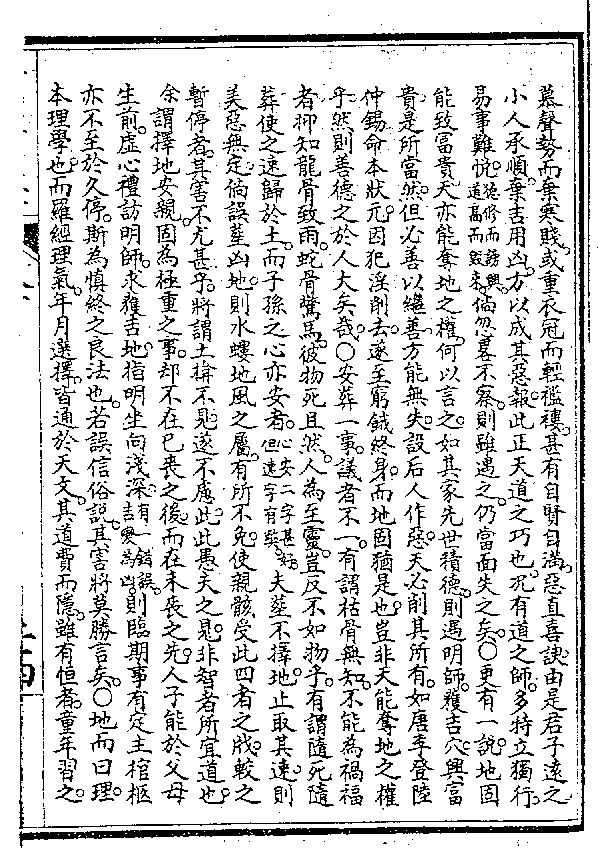 慕聲勢而棄寒賤或重衣冠而輕襤褸甚有自賢自滿惡直喜諛由是君子遠之
小人承順棄吉用凶方以成其惡報此正天道之巧也況有道之師多特立獨行
易事難悅德修而謗興道高而毀來倘忽畧不察則雖遇之仍當面失之矣○更有一說地固
能致富貴天亦能奪地之權何以言之如其家先世積德則遇明師獲吉穴興富
貴是所當然但必善以繼善方能無失設后人作惡天必削其所有如唐李登陸
仲錫命本狀元因犯淫削去遂至窮餓終身而地固猶是也豈非天能奪地之權
乎然則善德之於人大矣哉○安葬一事議者不一有謂枯骨無知不能為禍福
者抑知龍骨致雨蛇骨驚馬彼物死且然人為至靈豈反不如物乎有謂隨死隨
葬使之速歸於土而子孫之心亦安者心安二字甚好但速字有弊夫葬不擇地止取其速則
美惡無定倘誤塟凶地則水螻地風之屬有所不免使親骸受此四者之戕較之
暫停者其害不尤甚乎將謂土掩不見遂不慮此此愚夫之見非智者所宜道也
余謂擇地安親固為極重之事却不在已喪之後而在未喪之先人子能於父母
生前虛心禮訪明師求獲吉地指明坐向淺深有一錯誤吉變為凶則臨期事有定主棺柩
亦不至於久停斯為慎終之良法也若誤信俗說其害將莫勝言矣○地而曰理
本理學也而羅經理氣年月選擇皆通於天文其道費而隱雖有恒者童年習之